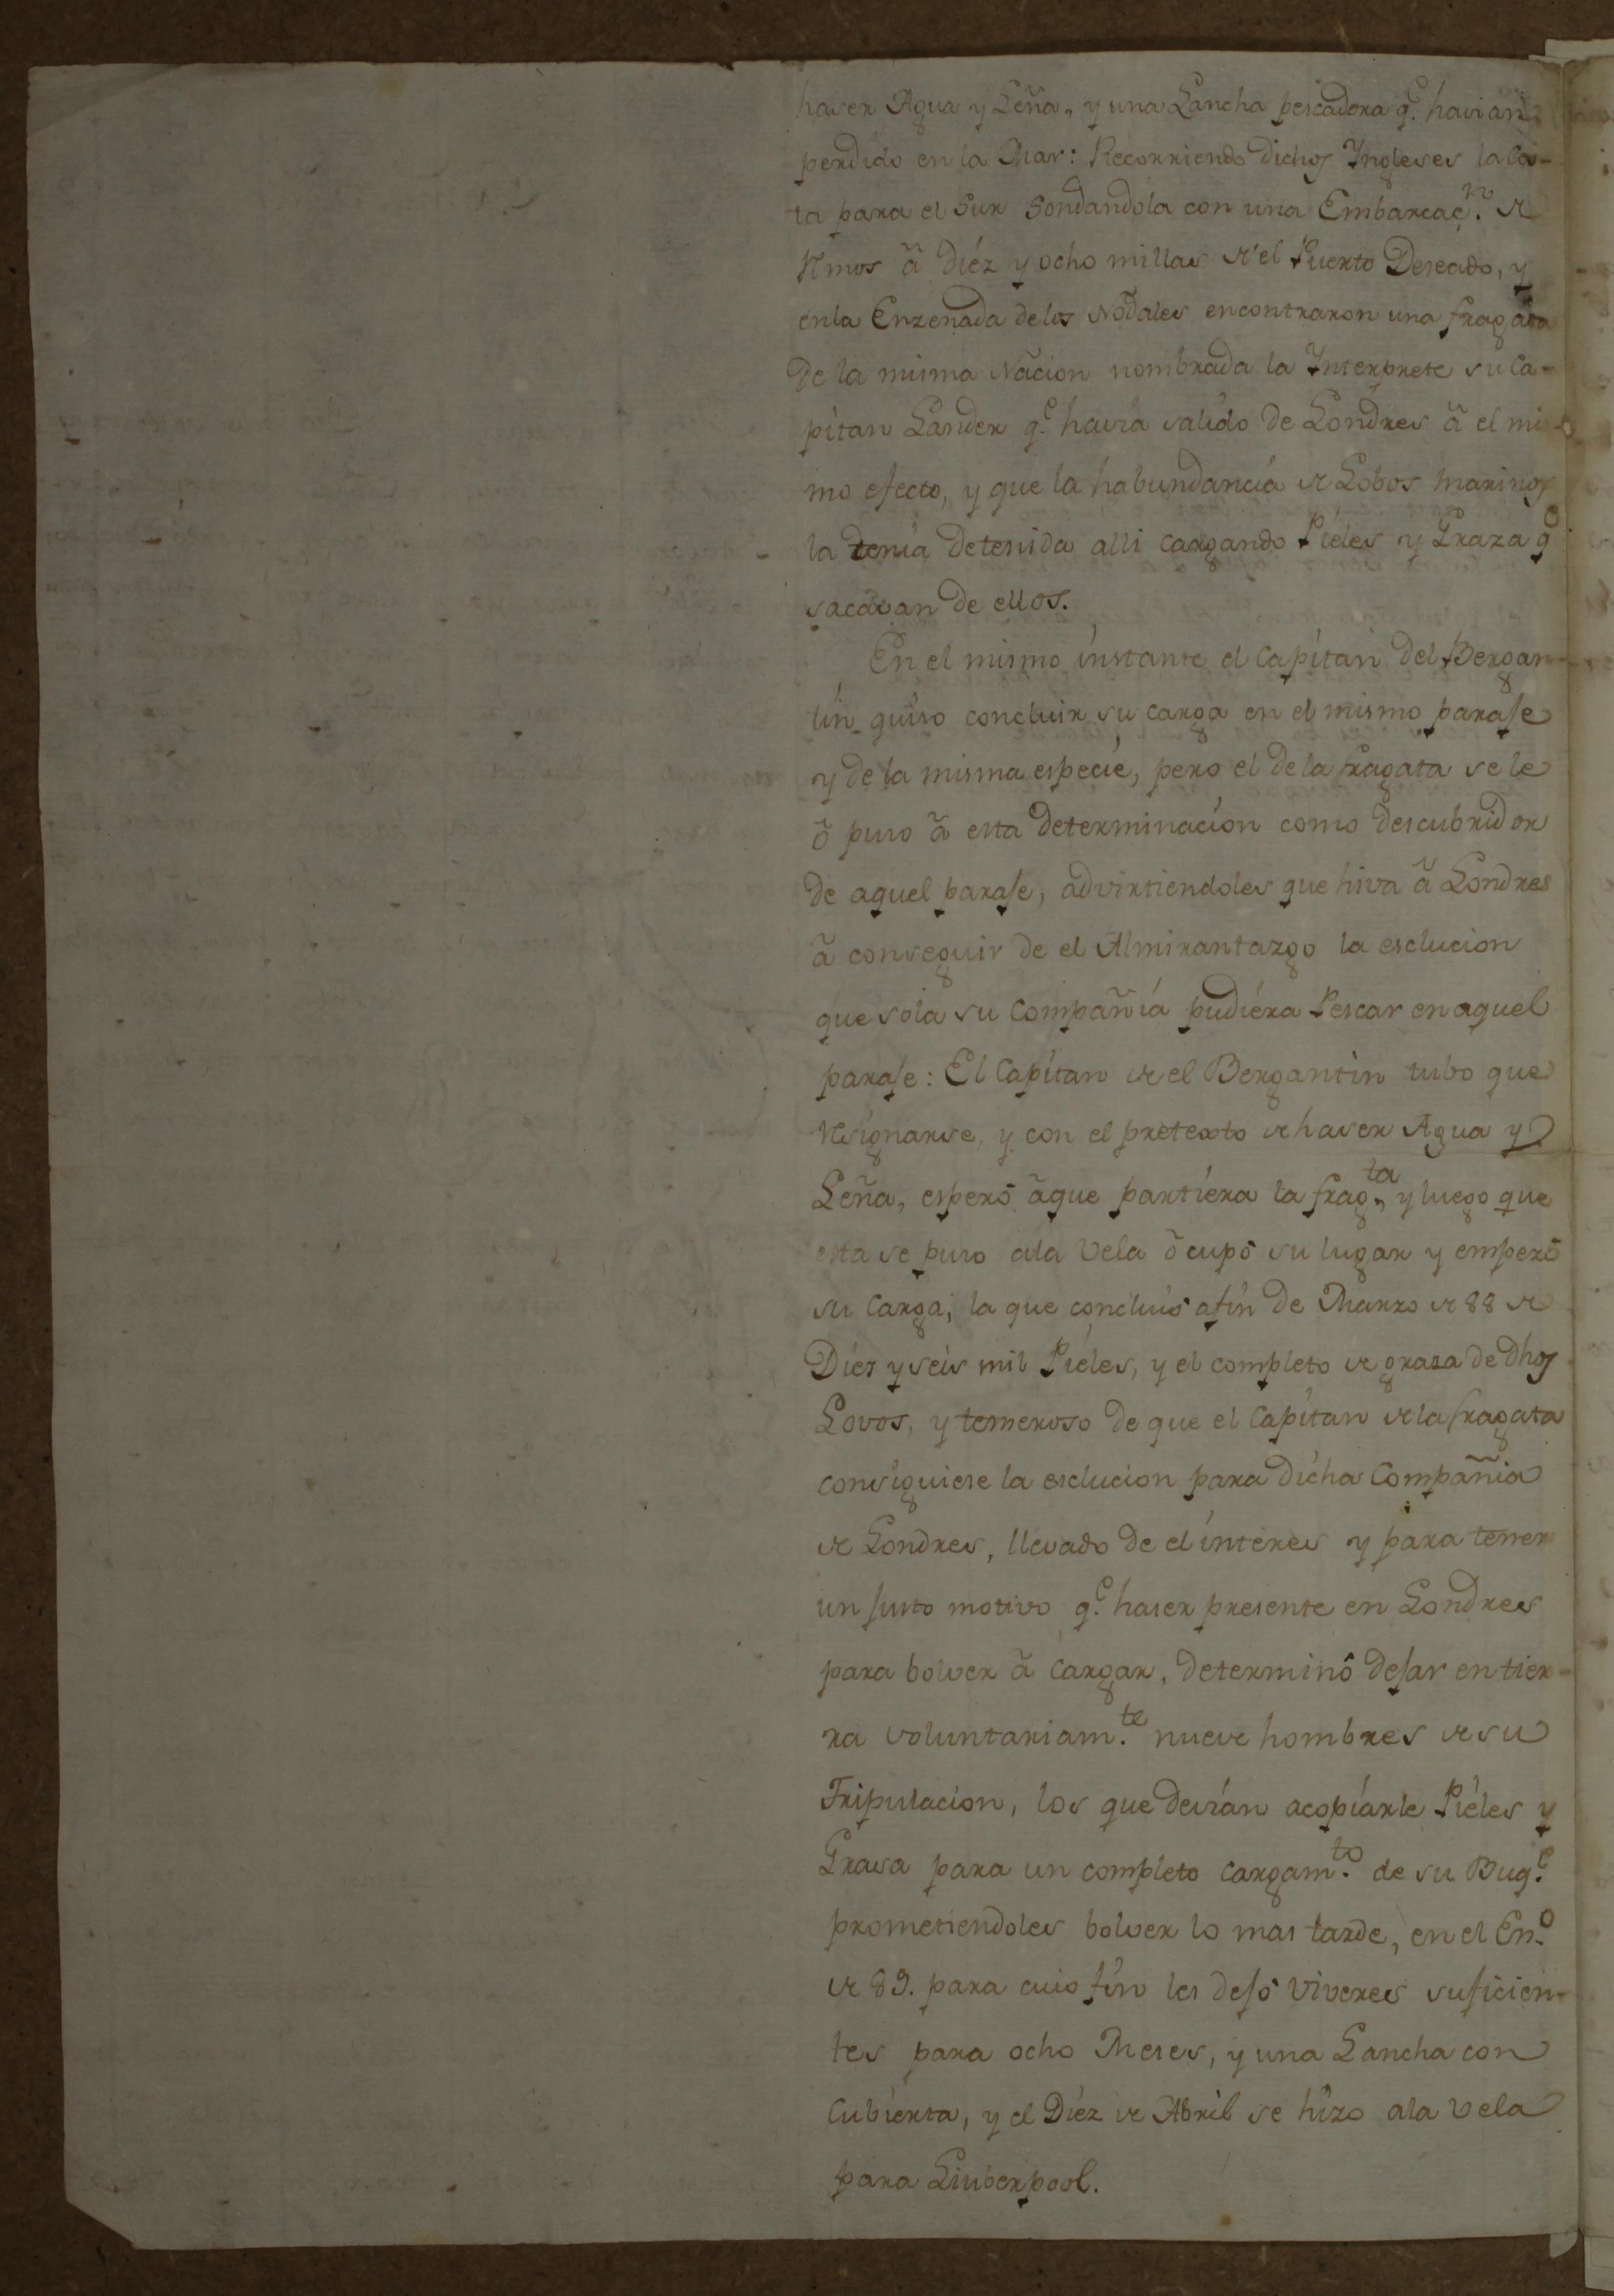 haser Agua y Leña, y una Lancha pescadora q.e havian
perdido en la Mar: Recorriendo dichos Yngleses la Cos-
ta para el Sur sondandola con una Embarcac.n de
Remos â diéz y ocho millas de el Puerto Deseado, y
enla Enzenada delos Nodales encontraron una fragata
de la misma Nacion nombrada la Ynterprete su Ca-
pitan Lander q.e havia salido de Londres â el mis-
mo efecto, y que la habundancia de Lobos marinos
la tenia detenida alli cargando Pieles y Graza q.e
sacavan de ellos.
En el mismo instante el Capitan del Bergan-
tin quiso concluir su carga en el mismo paraje
y de la misma especie, pero el de la fragata se le
ô puso â esta determinacion como descubridor
de aquel paraje, advirtiendoles que hiva â Londres
â conseguir de el Almirantazgo la esclucion
que sola su Compañia pudiéra Pescar en aquel
paraje: El Capitan de el Bergantin tubo que
resignarse, y con el pretexto de haser Agua y
Leña, esperô âque partiera la frag.ta, y luego que
esta se puso ala Vela ôcupô su lugar y empezô
su Carga, la que concluiô afin de Marzo de 88 de
Diez y seis mil Pieles, y el completo de grasa de dhos
Lovos, y temeroso de que el Capitan de la fragata
consiguiese la esclucion para dicha Compañia
de Londres, llevado de el interes y para tener
un justo motivo q.e haser presente en Londres
para bolver â Cargar, determinô dejar en tier-
ra voluntariam.te nueve hombres de su
Tripulacion, los que devian acopiarle Pieles y
Grasa para un completo Cargam.to de su Buq.e
prometiendoles bolver lo mas tarde, en el En.o
de 89. para cuio fin les dejô Viveres suficien-
tes para ocho Meses, y una Lancha con
Cubierta, y el Diéz de Abril se hizo ala vela
para Liuberpool.